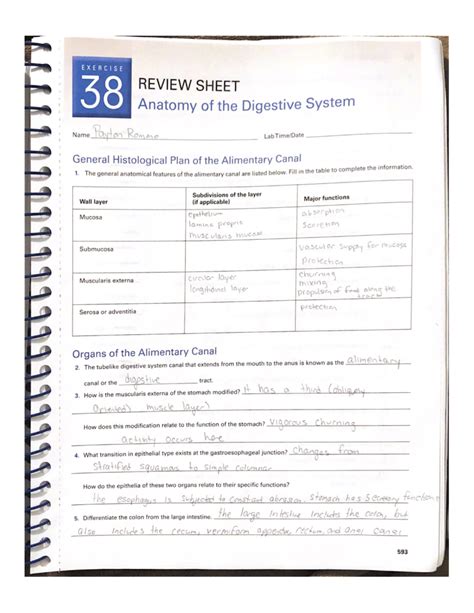 EXERCISE
38
REVIEW SHEET
Anatomy of the Digestive System
Name Payton Romero Lab Time/Date
General Histological Plan of the Alimentary Canal
1. The general anatomical features of the alimentary canal are listed below. Fill in the table to complete the information.
Wall layer
Subdivisions of the layer
(if applicable)
Major functions
Mucosa
epithelium
lamina propria
muscularis mucosae
absorption
secretion
Submucosa
vascular supply for mucosa
protection
Muscularis externa
circular layer
longitudinal layer
churning
mixing
propulsion of food along the
tract
Serosa or adventitia
protection
Organs of the Alimentary Canal
2. The tubelike digestive system canal that extends from the mouth to the anus is known as the alimentary
canal or the digestive tract.
3. How is the muscularis externa of the stomach modified? It has a third (obliquely
oriented) muscle layer)
How does this modification relate to the function of the stomach? vigorous churning
activity occurs here
4. What transition in epithelial type exists at the gastroesophageal junction? changes from
stratified squamous to simple columnar
How do the epithelia of these two organs relate to their specific functions?
the esophagus is subjected to constant abrasion. Stomach has secretory functions
5. Differentiate the colon from the large intestine. the large intestine includes the colon, but
also includes the cecum, vermiform appendix, rectum, and anal canal
593